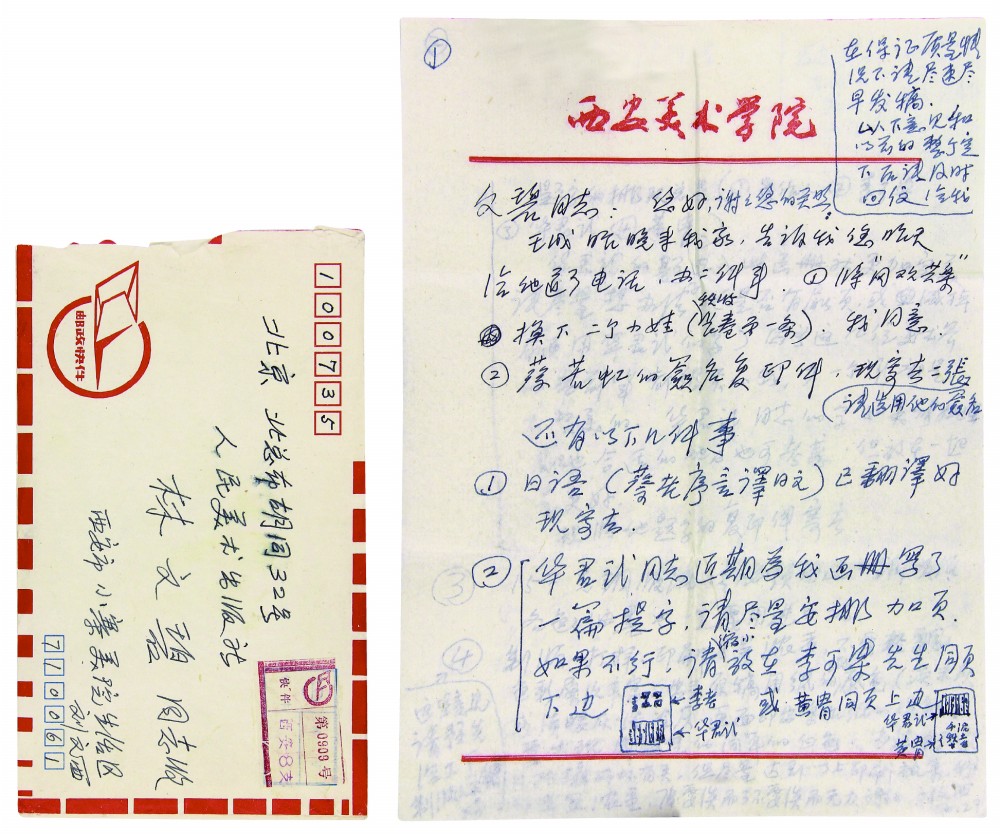 邮政快件
100735
北京 北总布胡同32号
人民美术出版社
林文碧 同志收
西安市小寨美院生活区
刘文西
710061
邮件
西安8支
第0909号
①
西安美术学院
在保证质量情
况下请尽速尽
早发稿.
以下意见和
下后请及时
回信给我
文碧同志: 您好,谢谢您的关照.
王成昨晚来我家,告诉我您昨天
给他通了电话,办二件事. ①将"同欢共乐"
换下二个小娃(长卷第一条).我同意.
②蔡若虹的签名复印件,现寄去二张
请选用他的签名
还有以下几件事
①日语(蔡老序言译日文)已翻译好
现寄去
②华君武同志近期为我画册写了
一篇提字,请尽量安排加页.
如果不行,请缩小放在李可染先生同页
下边 ←李老 或黄胄同页上边
←华君武
华君武→
黄胄→